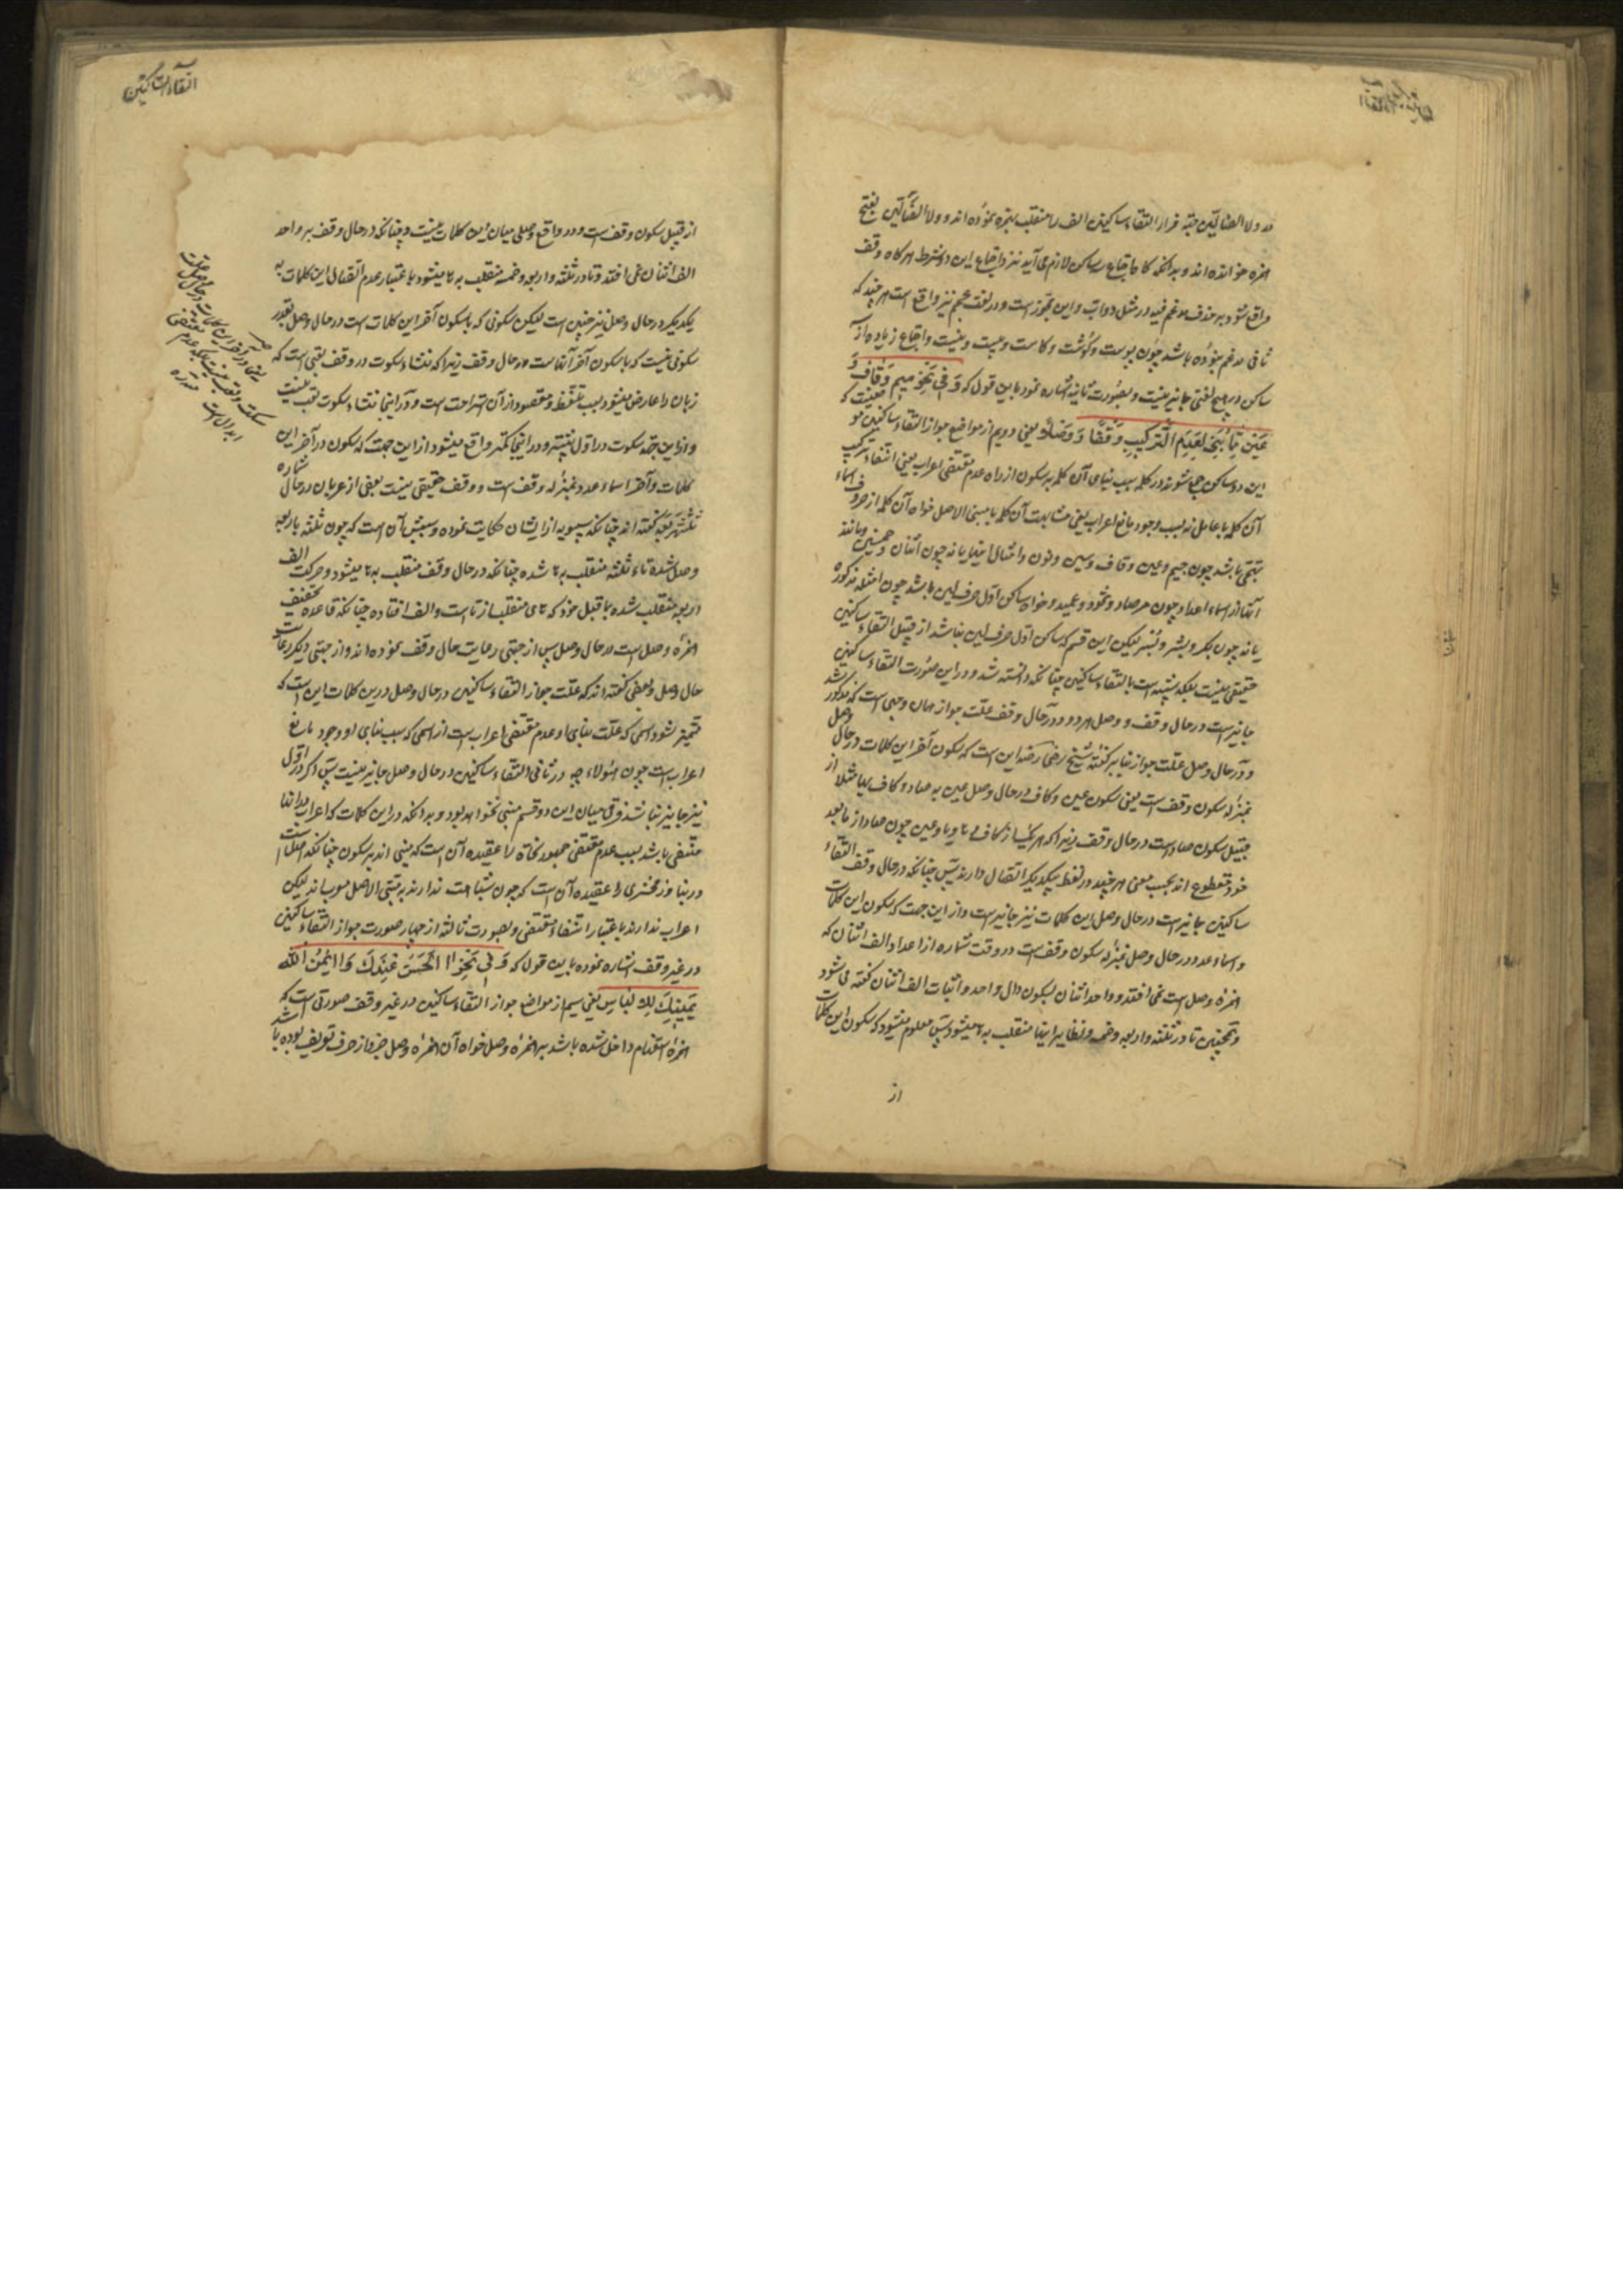 در ولا الضالین جهة فرار التقاء ساکنین الف را منقلب بهمزه نموده اند و ولا الضألین بفتح
همزه خوانده اند و بدانکه کا اجتماع ساکن لازم می آید نیز و اجتماع این دو شرط هر کاه وقف
واقع شود بر حذف مدغم فیه در مثل دواب و این مجوز است و در لغت عجم نیز واقع است هر چند که
ثانی مدغم نبوده باشد چون پوست و گوشت و کاست و بیست و نیست و اجتماع زیاده از
ساکن در هیچ لغتی جایز نیست و بصورت ثانیه اشاره نمود باین قول که وَ فی نَحْوِ میم وَ قاف وَ
عَیْن مِمّا بُنِیَ لِعَدَمِ التَّرْکیبِ وَقْفًا وَ وَصْلًا یعنی دویم از مواضع جواز التقاء ساکنین
این دو ساکن جمع شوند در کلمه بسبب بنای آن کلمه بر سکون از راه عدم مقتضی اعراب یعنی انتفاء ترکیب
آن کلمه با عامل نه بسبب وجود مانع اعراب یعنی مشابهت آن کلمه با مبنی الاصل خواه آن کلمه از حروف
تهجی باشد چون جیم و عین و قاف و سین و نون و امثال اینها یا نه چون اثنان و مانند
آنها از اسماء اعداد و چون صاد و ثمود و عمید و خواه ساکن اول حرف لین باشد چون امثله مذکوره
یا نه چون بکر و بشر و بسر لیکن این قسم که ساکن اول حرف لین نباشد از قبیل التقاء ساکنین
حقیقی نیست بلکه شبیه است بالتقاء ساکنین چنانکه دانسته شد و در این صورت التقاء ساکنین
جایز است در حال وقف و وصل هر دو و در حال وقف علت جواز همان وجهی است که مذکور شد
و در حال وصل علت جواز بنا بر گفته شیخ رضی رضه این است که سکون آخر این کلمات در حال وصل
بمنزله سکون وقف است یعنی سکون عین و کاف در حال وصل عین به صاد و کاف بها مثلا از
قبیل سکون صاد است در حال وقف زیرا که هر یک از کاف ها و یا و عین چون صاد از ما بعد
خود مقطوع اند بحسب معنی هر چند در لفظ بیکدیگر اتصال دارند پس چنانکه در حال وقف التقاء
ساکنین جایز است در حال وصل این کلمات نیز جایز است و از این جهت که سکون این کلمات
و اسماء عدد در حال وصل بمنزله سکون وقف است در وقت شماره از اعداد الف اثنان که
همزه وصل است نمی افتد و واحد اثنان بسکون دال واحد و اثبات الف اثنان گفته می شود
و همچنین تا در ثلثه و اربعه و خمسه و نظایر اینها منقلب به ها میشود پس معلوم میشود که سکون این کلمات
از
التقاء الساکنین
از قبیل سکون وقف است و در واقع وصلی میان این کلمات نیست و چنانکه در حال وقف بر واحد
الف اثنان نمی افتد و تا در ثلثه و اربعه و خمسه منقلب به ها میشود باعتبار عدم اتصال این کلمات به
یکدیگر در حال وصل نیز چنین است لیکن سکونی که با سکون آخر این کلمات است در حال وصل بقدر
سکوتی نیست که با سکون آخر آنهاست در حال وقف زیرا که منشاء سکوت در وقف تعبی است که
زبان را عارض میشود بسبب تلفظ و مقصود از آن استراحت است و در اینجا منشاء سکوت تعب نیست
و از این جهة سکوت در اول بیشتر و در اینجا کمتر واقع میشود از این جهت که سکون در آخر این
کلمات و آخر اسماء عدد بمنزله وقف است و وقف حقیقی نیست بعضی از عربان در حال شماره
ثلثهربعه گفته اند چنانکه سیبویه از ایشان حکایت نموده و سببش آن است که چون ثلثه باربعه
وصل شده تاء ثلثه منقلب به ها شده چنانکه در حال وقف منقلب به ها میشود و حرکت الف
اربعه منتقل شده بما قبل خود که های منقلب از تا است و الف افتاده چنانکه قاعده تخفیف
همزه وصل است در حال وصل پس از جهتی رعایت حال وقف نموده اند و از جهتی دیگر رعایت
حال وصل و بعضی گفته اند که علت جواز التقاء ساکنین در حال وصل درین کلمات این است که
متمیز شود اسمی که علت بنای او عدم مقتضی اعراب است از اسمی که سبب بنای او وجود مانع
اعراب است چون هؤلاء چه در ثانی التقاء ساکنین در حال وصل جایز نیست پس اگر در اول
نیز جایز نباشد فرقی میان این دو قسم مبنی نخواهد بود و بدانکه در این کلمات که اعراب در آنها
منتفی باشد بسبب عدم مقتضی جمهور نحاة را عقیده آن است که مبنی اند بر سکون چنانکه اصل است
در بنا و زمخشری را عقیده آن است که چون مشابهت ندارند به مبنی الاصل معرب اند لیکن
اعراب ندارند باعتبار انتفاء مقتضی و بصورت ثالثه از چهار صورت جواز التقاء ساکنین
در غیر وقف اشاره نموده باین قول که وَ فی نَحْوِ آ الْحَسَنُ عِنْدَکَ وَ آ ایْمُنُ اللّه
یَمینُکَ لِلِالْتِباسِ یعنی سیم از مواضع جواز التقاء ساکنین در غیر وقف صورتی است که
همزه استفهام داخل شده باشد بر همزه وصل خواه آن همزه وصل جزو از حرف تعریف بوده باشد